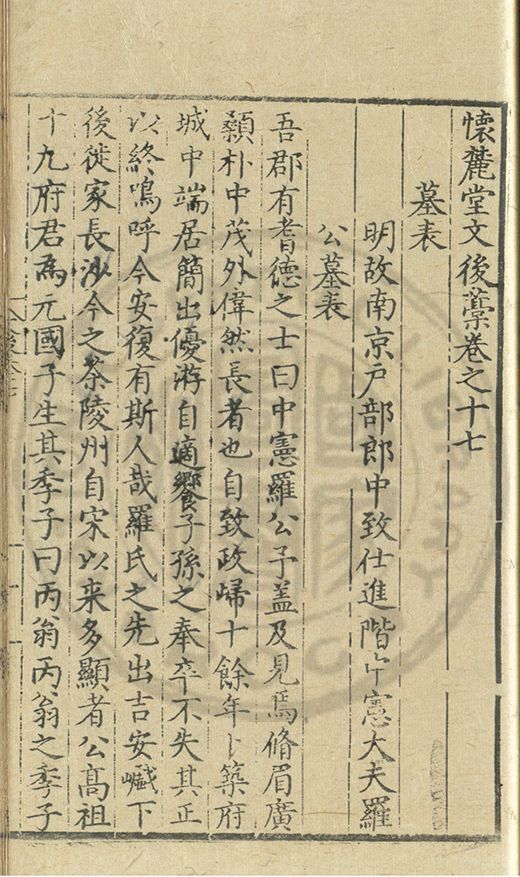 懷麓堂文後藁卷之十七
墓表
明故南京戶部郎中致仕進階中憲大夫羅
公墓表
吾郡有耆德之士曰中憲羅公子盖及見焉脩眉廣
顙朴中茂外偉然長者也自致政歸十餘年卜築府
城中端居簡出優游自適饗子孫之奉卒不失其正
以終嗚呼今安復有斯人哉羅氏之先出吉安嶥下
後徙家長沙今之茶陵州自宋以来多顯者公髙祖
十九府君為元國子生其季子曰丙翁丙翁之季子